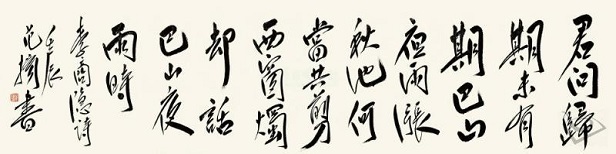 君问歸
期未有
期巴山
夜雨漲
秋池何
當共剪
西窗燭
却話
巴山夜
雨時
李商隐詩
壬辰
范書